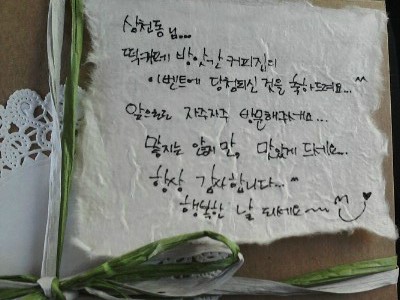 삼천동님...
떡카페 방앗간 커피집의
이벤트에 당첨되신 것을 축하드려요...^^
앞으로도 자주자주 방문해주세요...
많지는 않지만, 맛있게 드세요...
항상 감사합니다...^
행복한 날 되세요~~